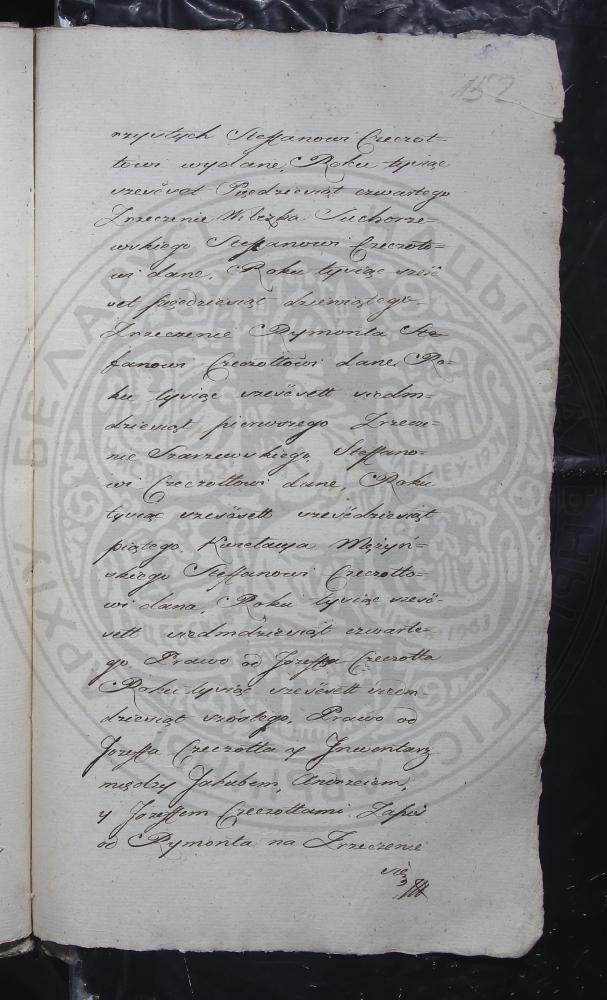 152
rzystych Steffanowi Czeczot-
towi wydane, Roku tysiąc
szesćset Pięcdziesiąt czwartego
Zrzeczenie Wilczka Suchorze-
wskiego Steffanowi Czeczoto-
wi dane, Roku tysiąc szeć
set pięcdziesiąt dziewiątego
Zrzeczenie Rymonta Ste-
fanowi Czeczottowi dane Ro-
ku tysiąc szesćsett siedm-
dziesiąt pierwszego Zrzecze-
nie Szarzewskiego, Steffano-
wi Czeczottowi dane, Roku
tysiąc szesćsett szesćdziesiąt
piątego, Kwietacya Mężyń-
skiego Steffanowi Czeczotto-
wi dana, Roku tysiąc szesć-
sett siedmdziesiąt czwarte-
go Prawo od Jozeffa Czeczotta
Roku tysiąc szesćsett siedm-
dziesiąt szóstego, Prawo od
Jozeffa Czeczotta y Jnwentarz
między Jakubem, Andrzeiem,
y Jozeffem Czeczottami Zapis
od Rymonta na Zrzeczenie
się